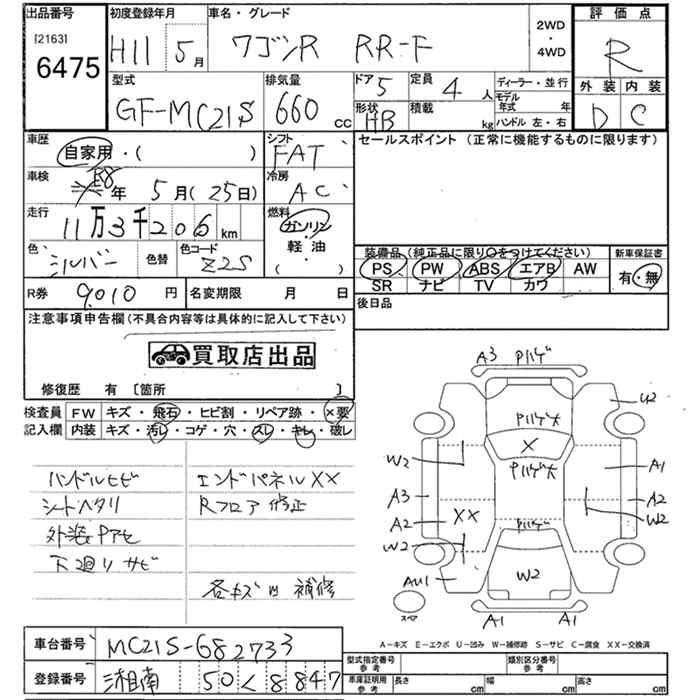 出品番号 初度登録年月 車名・グレード 2WD・4WD 評価点
[2163]
6475 H11 5月 ワゴンR RR-F R
型式 排気量 ドア 5 定員 4人 ディーラー・並行 外装 内装
GF-MC21S 660cc 形状 HB 積載 kg モデル年式 年 D C
ハンドル左・右
車歴 シフト セールスポイント (正常に機能するものに限ります)
自家用・( ) FAT
車検 年 5月 (25日) 冷房 AC
走行 11万3千206km 燃料 ガソリン 軽油 ( )
色 シルバー 色替 色コード Z2S
装備品 (純正品に限り○をつけてください) 新車保証書
PS PW ABS エアB AW 有・無
SR ナビ TV カワ
R券 9,010円 名変期限 月 日 後日品
注意事項申告欄 (不具合内容等は具体的に記入して下さい)
買取店出品
修復歴 有 〔箇所 〕
検査員 FW キズ・飛石・ヒビ割・リペア跡・×要
記入欄 内装 キズ・汚レ・コゲ・穴・スレ・キレ・破レ
ハンドルヒビ エンドパネルXX
シートヘタリ Rフロア修正
外装Pアセ
下廻りサビ
各キズ凹補修
A3 Pハゲ
U2
Pハゲ大
X
W2 Pハゲ大 A1
A3 A2
A2 XX W2
W2 Pハゲ
W2
AU1
スペア A1 A1
A-キズ E-エクボ U-凹み W-補修跡 S-サビ C-腐食 XX-交換済
車台番号 MC21S-682733
型式指定番号 参考 類別区分番号 参考
登録番号 湘南 50 く 8847
車庫証明用 参考 長さ cm 幅 cm 高さ cm